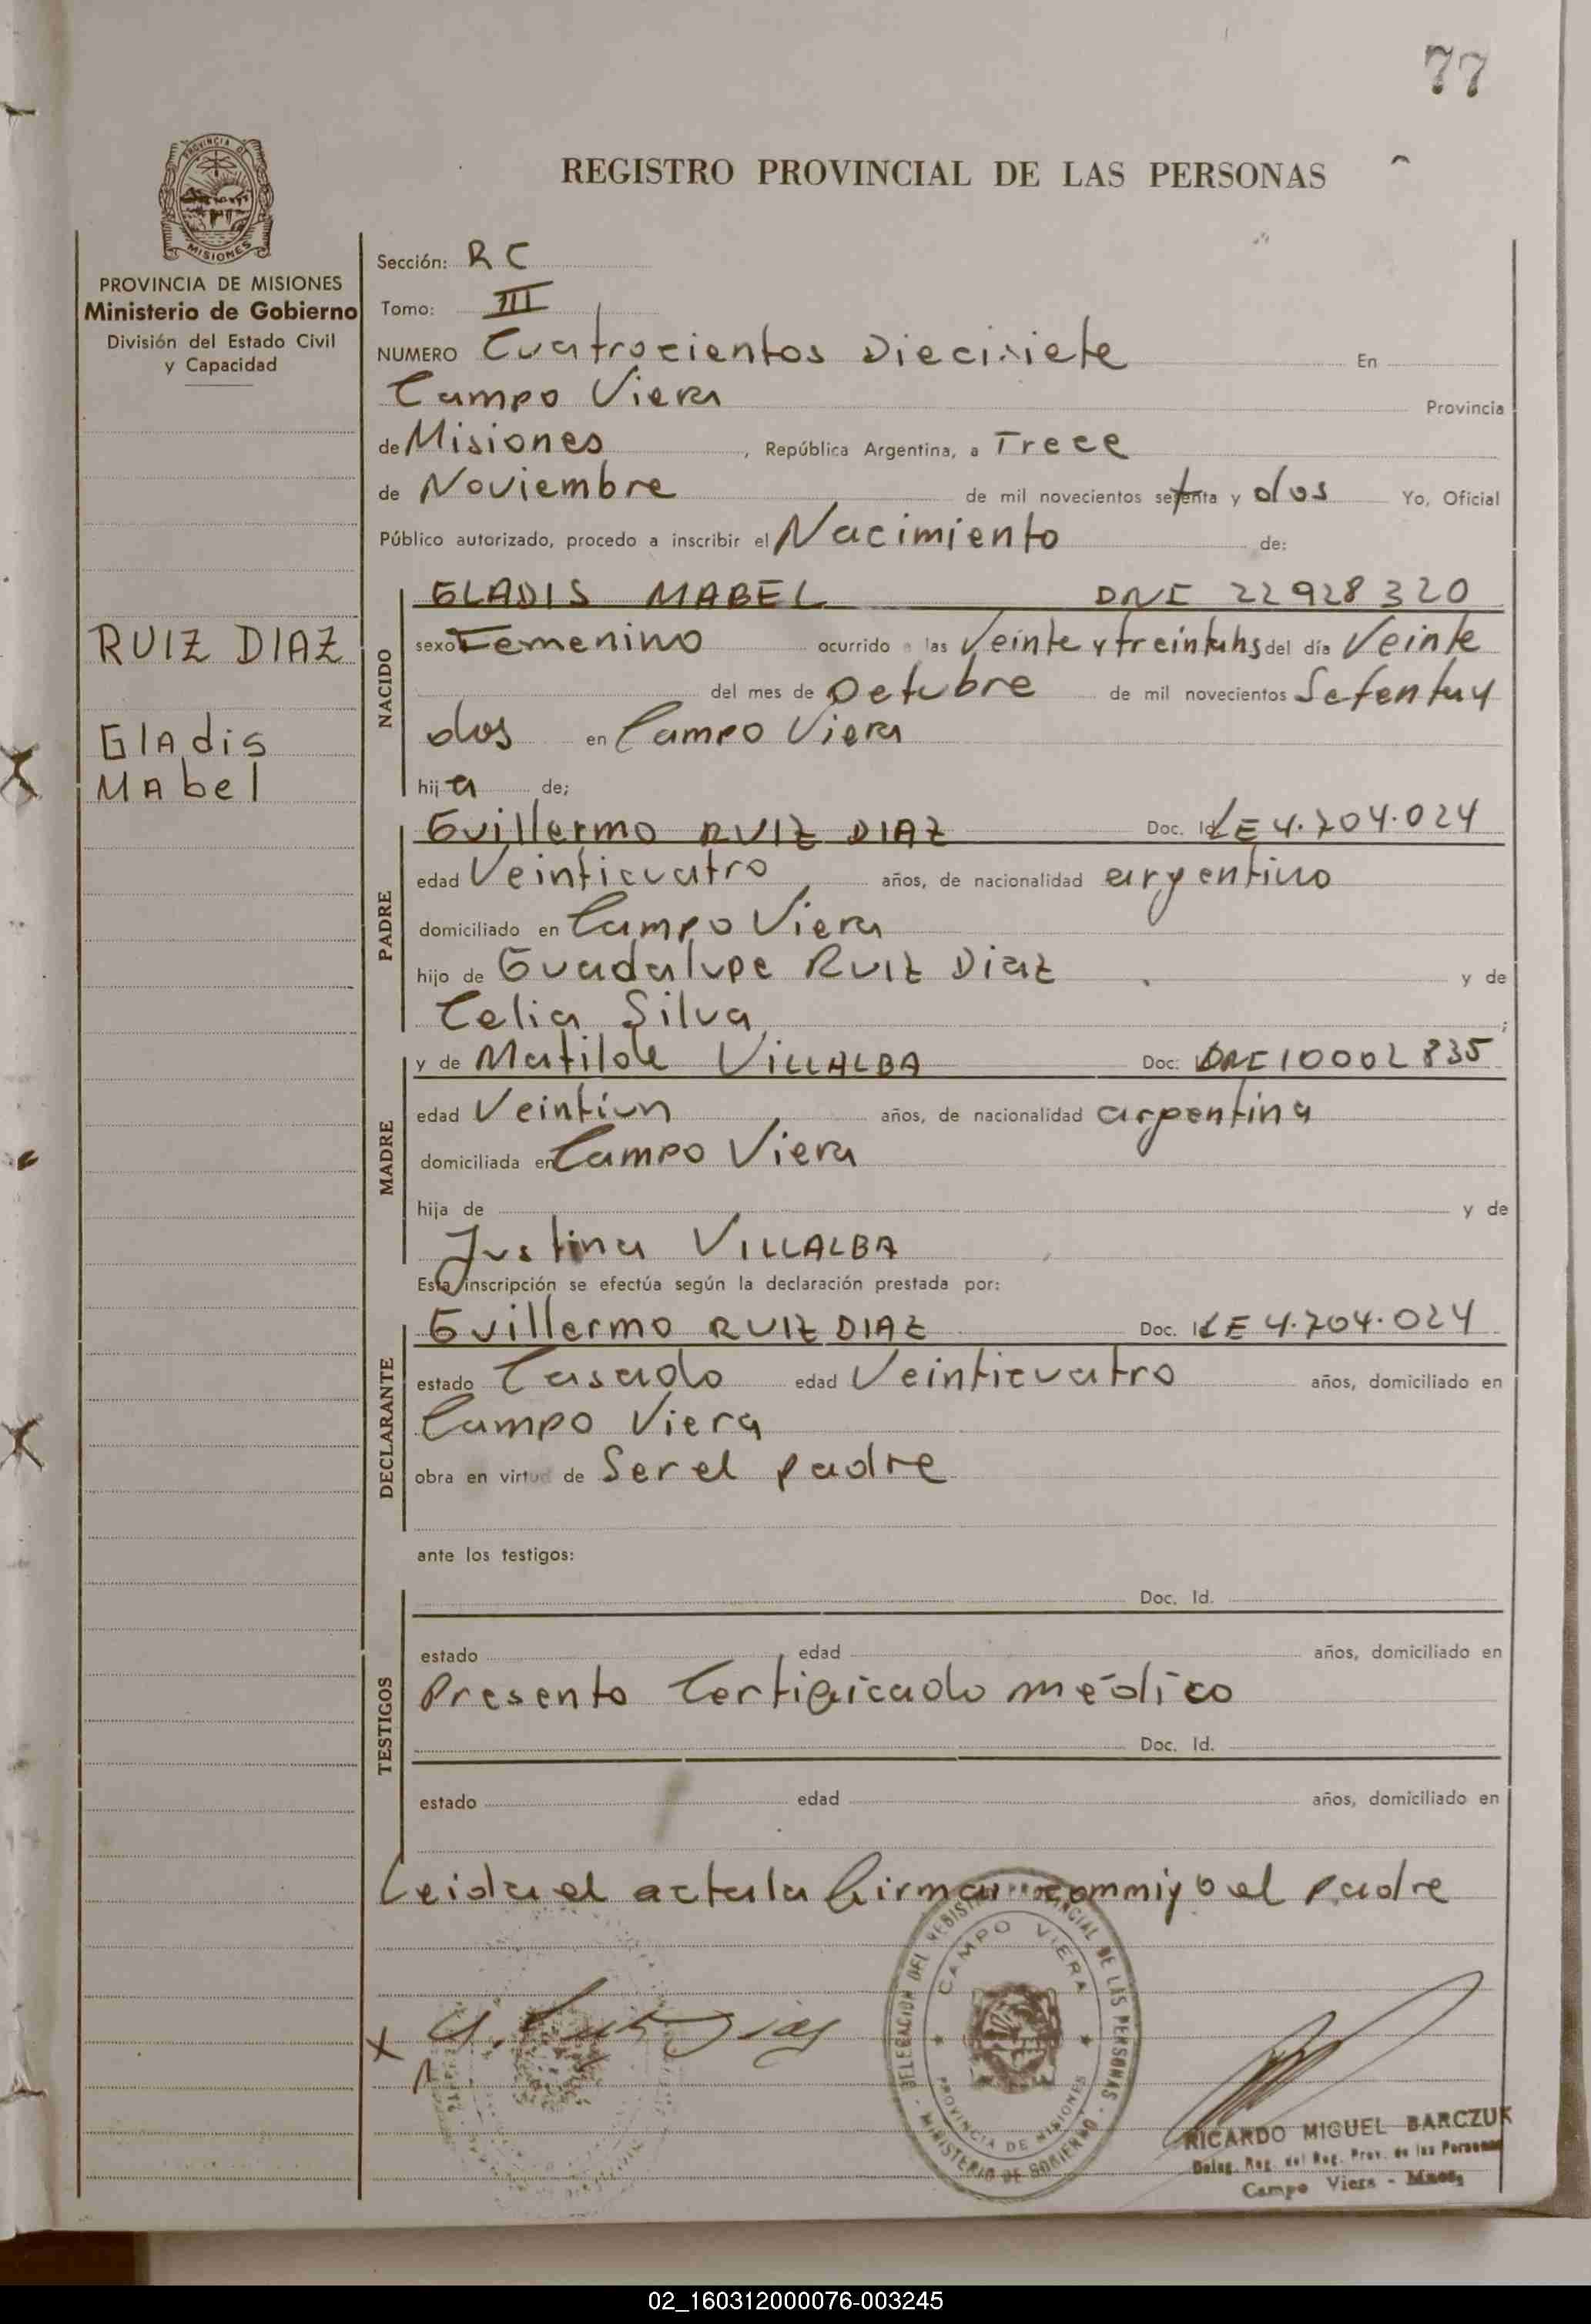 77
REGISTRO PROVINCIAL DE LAS PERSONAS
PROVINCIA DE MISIONES
PROVINCIA DE MISIONES
Ministerio de Gobierno
División del Estado Civil
y Capacidad
RUIZ DIAZ
Gladis
Mabel
Sección: RC
Tomo: III
NUMERO Cuatrocientos Diecisiete En
Campo Viera Provincia
de Misiones, República Argentina, a Trece
de Noviembre de mil novecientos setenta y dos Yo, Oficial
Público autorizado, procedo a inscribir el Nacimiento de:
NACIDO
GLADIS MABEL DNI 22928320
sexo Femenino ocurrido a las Veinte y treinta hs del día Veinte
del mes de Octubre de mil novecientos Setenta y
dos en Campo Viera
hija de;
PADRE
Guillermo RUIZ DIAZ Doc. Id LE 4.704.024
edad Veinticuatro años, de nacionalidad argentino
domiciliado en Campo Viera
hijo de Guadalupe RUIZ Diaz y de
Celia Silva;
MADRE
y de Matilde VILLALBA Doc: DNI 10002835
edad Veintiun años, de nacionalidad argentina
domiciliada en Campo Viera
hija de y de
Justina VILLALBA
Esta inscripción se efectúa según la declaración prestada por:
DECLARANTE
Guillermo RUIZ DIAZ Doc. Id LE 4.704.024
estado Casado edad Veinticuatro años, domiciliado en
Campo Viera
obra en virtud de Ser el padre
ante los testigos:
TESTIGOS
Doc. Id.
estado edad años, domiciliado en
Presento Certificado médico
Doc. Id.
estado edad años, domiciliado en
Leida el acta la firman commigo el padre
DELEGACION DEL REGISTRO PROVINCIAL DE LAS PERSONAS
CAMPO VIERA
PROVINCIA DE MISIONES
MINISTERIO DE GOBIERNO
RICARDO MIGUEL BARCZUK
Deleg. Reg. del Reg. Prov. de las Personas
Campo Viera - Mnes.
02_160312000076-003245